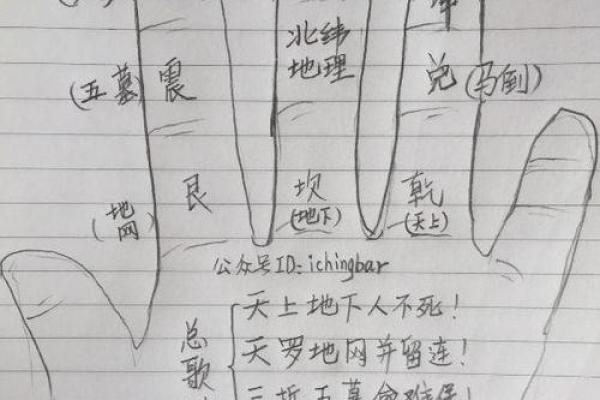 北纬
地理
(五墓) 震
兑 (马倒)
艮
坎
(地下)
乾
(天上)
(地网)
公众号ID: ichingbar
总歌
天上地下人不死!
天罗地网并留连!